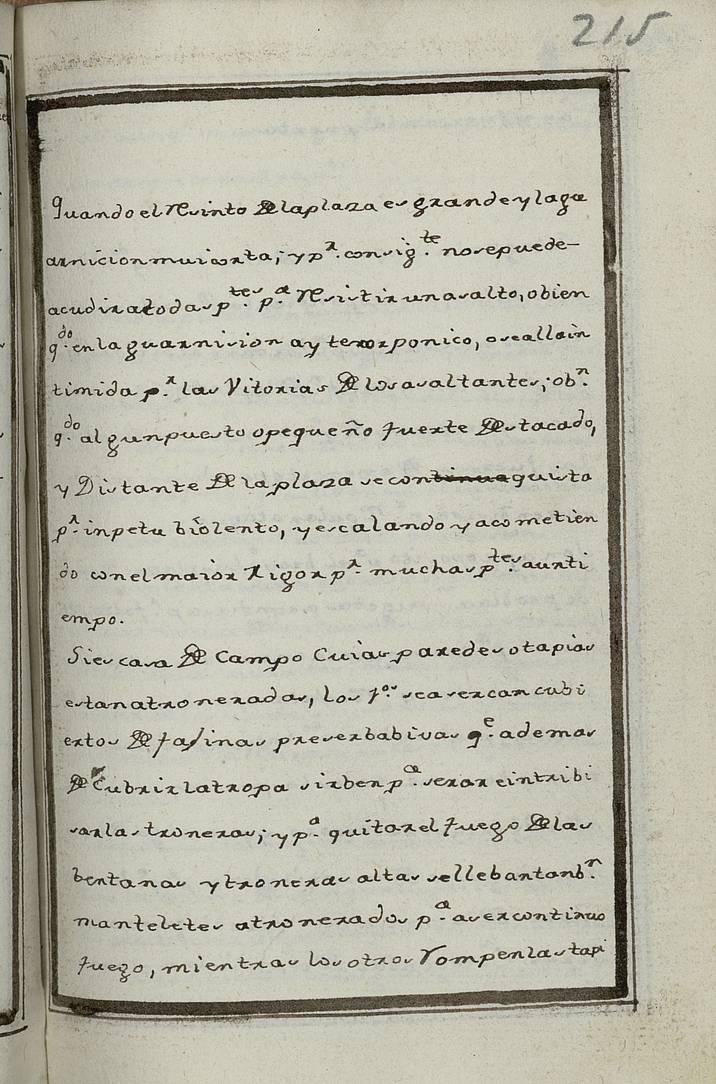 215
Quando el resinto De la plaza es grande y la gu
arnicion mui corta; y p.r consig.te no se puede-
acudir a todas p.tes p.a resistir un asalto, o bien
q.do en la guarnision ay terror ponico, o se alla in
timida p.r las Vitorias De los asaltantes; o b.n
q.do algun puesto o pequeño fuerte Destacado,
y Distante De la plaza se continua quista
p.r inpetu biolento, y escalando y acometien
do con el maior Rigor p.r muchas p.tes a un ti
empo.
Si es casa De Campo Cuias paredes o tapias
estan atroneradas, los f.os se asercan cubi
ertos De fasinas preserbabivas q.e ademas
De Cubrir la tropa sirben p.a serar e intribi
sar las troneras; y p.a quitar el fuego De las
bentanas y troneras altas se lleban tanb.n
manteletes atronerados p.a aser continuo
fuego, mientras los otros rompen las tapi